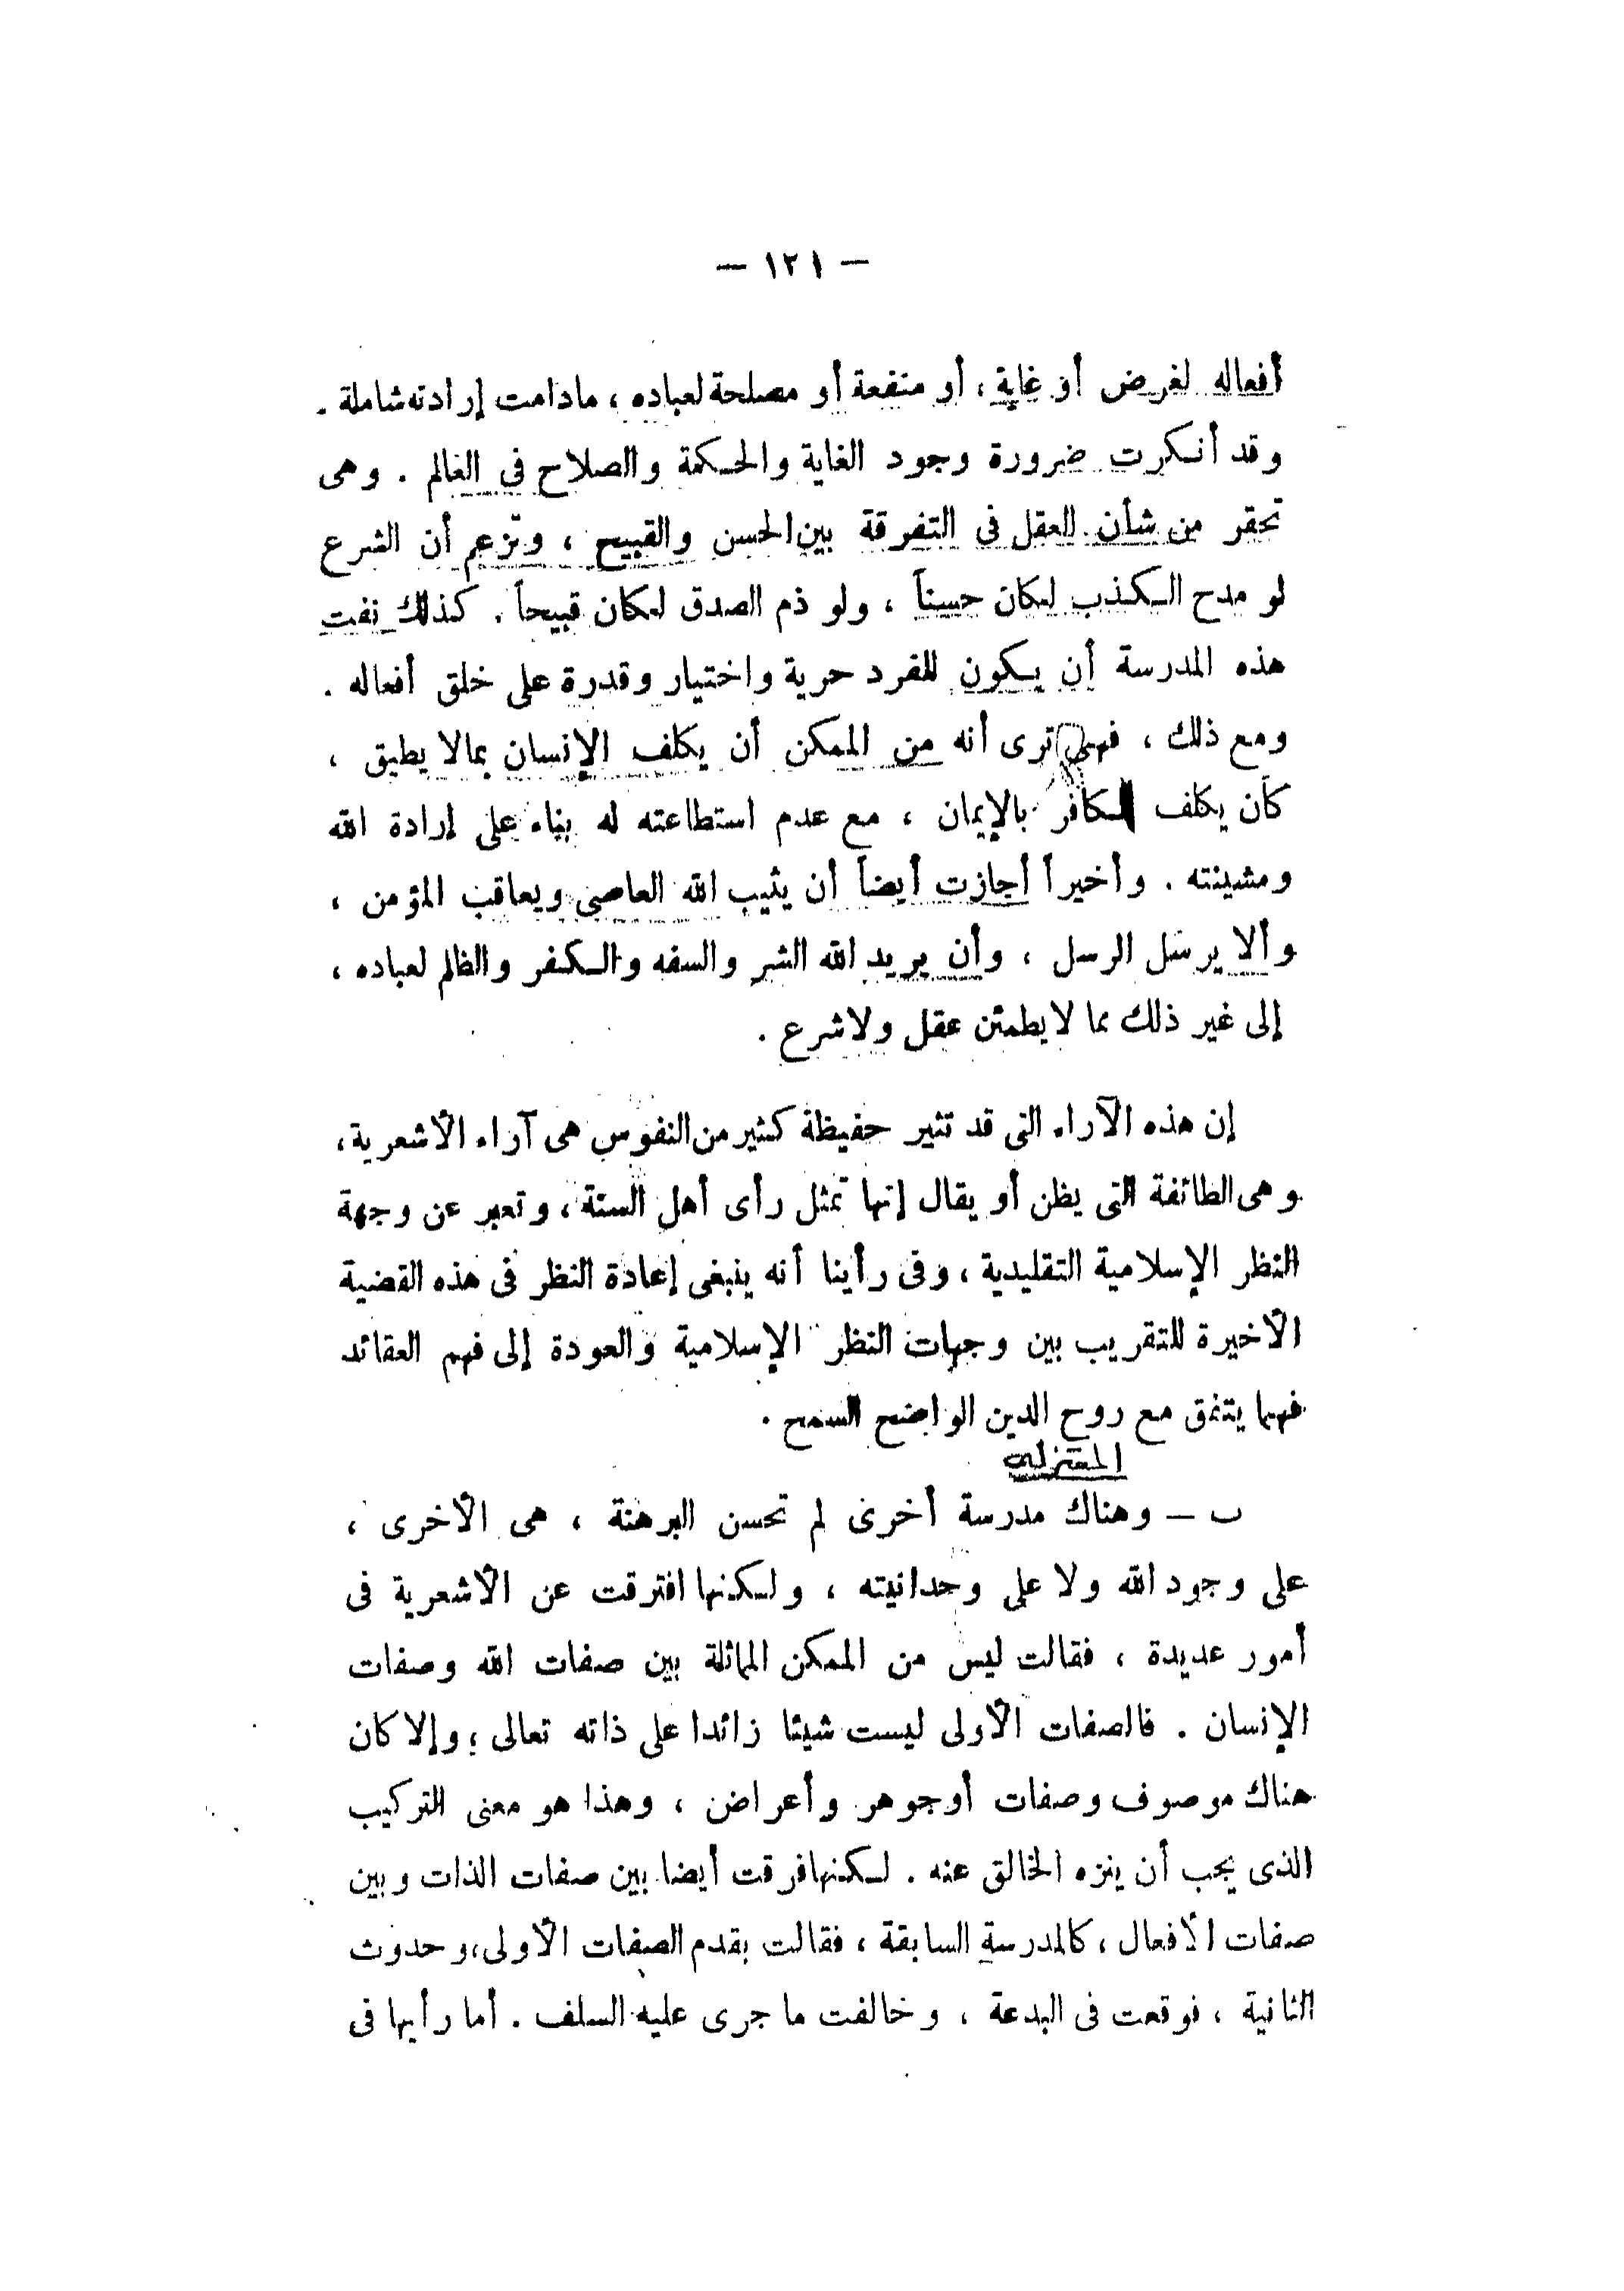 — ١٢١ —
أفعاله لغرض أو غاية ، أو منفعة أو مصلحة لعباده ، مادامت إرادته شاملة .
وقد أنكرت ضرورة وجود الغاية والحكمة والصلاح فى العالم . وهى
تحقر من شأن العقل فى التفرقة بين الحسن والقبيح ، وتزعم أن الشرع
لو مدح الكذب لكان حسناً ، ولو ذم الصدق لكان قبيحاً . كذلك نفت
هذه المدرسة أن يكون للفرد حرية واختيار وقدرة على خلق أفعاله .
ومع ذلك ، فهى ترى أنه من الممكن أن يكلف الإنسان بمالا يطيق ،
كأن يكلف الكافر بالإيمان ، مع عدم استطاعته له بناء على إرادة الله
ومشيئته . وأخيراً أجازت أيضاً أن يثيب الله العاصى ويعاقب المؤمن ،
وألا يرسل الرسل ، وأن يريد الله الشر والسفه والكفر والظلم لعباده ،
إلى غير ذلك مما لايطمئن عقل ولاشرع .
إن هذه الآراء التى قد تثير حفيظة كثير من النفوس هى آراء الأشعرية ،
وهى الطائفة التى يظن أو يقال إنها تمثل رأى أهل السنة ، وتعبر عن وجهة
النظر الإسلامية التقليدية ، وفى رأينا أنه ينبغى إعادة النظر فى هذه القضية
الأخيرة للتقريب بين وجهات النظر الإسلامية والعودة إلى فهم العقائد
فهما يتفق مع روح الدين الواضح السمح .
المعتزله
ب — وهناك مدرسة أخرى لم تحسن البرهنة ، هى الأخرى ،
على وجود الله ولا على وحدانيته ، ولكنها افترقت عن الأشعرية فى
أمور عديدة ، فقالت ليس من الممكن المماثلة بين صفات الله وصفات
الإنسان . فالصفات الأولى ليست شيئا زائدا على ذاته تعالى ؛ وإلا كان
هناك موصوف وصفات أوجوهر وأعراض ، وهذا هو معنى التركيب
الذى يجب أن ينزه الخالق عنه . لكنها فرقت أيضا بين صفات الذات وبين
صفات الأفعال ، كالمدرسة السابقة ، فقالت بقدم الصفات الأولى ، وحدوث
الثانية ، فوقعت فى البدعة ، وخالفت ما جرى عليه السلف . أما رأيها فى